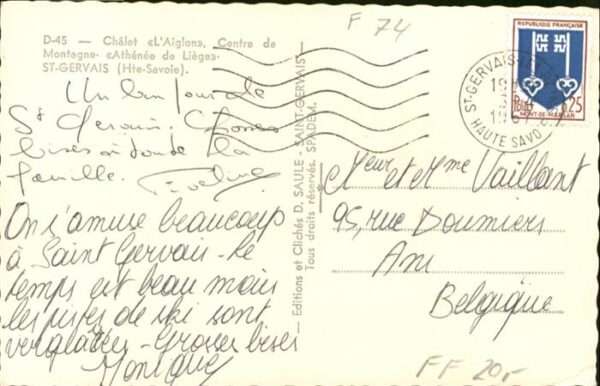 F 74
D-45 — Châlet «L'Aiglon», Centre de
Montagne «Athénée de Liège»
ST-GERVAIS (Hte-Savoie).
Un bonjour de
St Gervais. Bonnes
bises à toute la
famille. Eveline
On s'amuse beaucoup
à Saint Gervais. Le
temps est beau mais
les pistes de ski sont
verglacées. Grosses bises
Monique
Editions et Clichés D. SAULE - SAINT-GERVAIS-
Tous droits réservés. SPADEM.
REPUBLIQUE FRANÇAISE
0,25
MONT-DE-MARSAN
ST-GERVAIS
HAUTE SAVOIE
Meur et Mme Vaillant
95, rue Doumiers
Belgique
FF 20,-